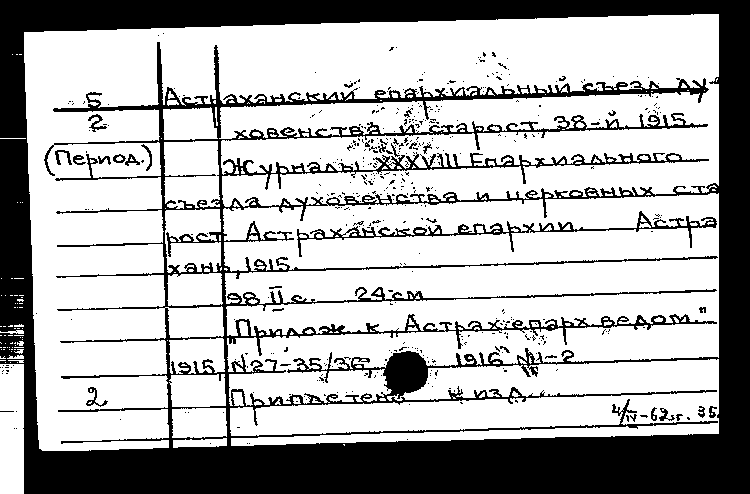 Б Астраханский епархиальный съезд ду-
2 ховенства и старост, 38-й. 1915.
(Период.) Журналы XXXVIII Епархиального
съезда духовенства и церковных ста
рост Астраханской епархии. Астра
хань, 1915.
98, II с. 24 см
"Прилож. к "Астрах. епарх. ведом."
1915, N27-35/36, 1916 N1-2
2 Приплетено к изд...
4/IV-62 г. 35.